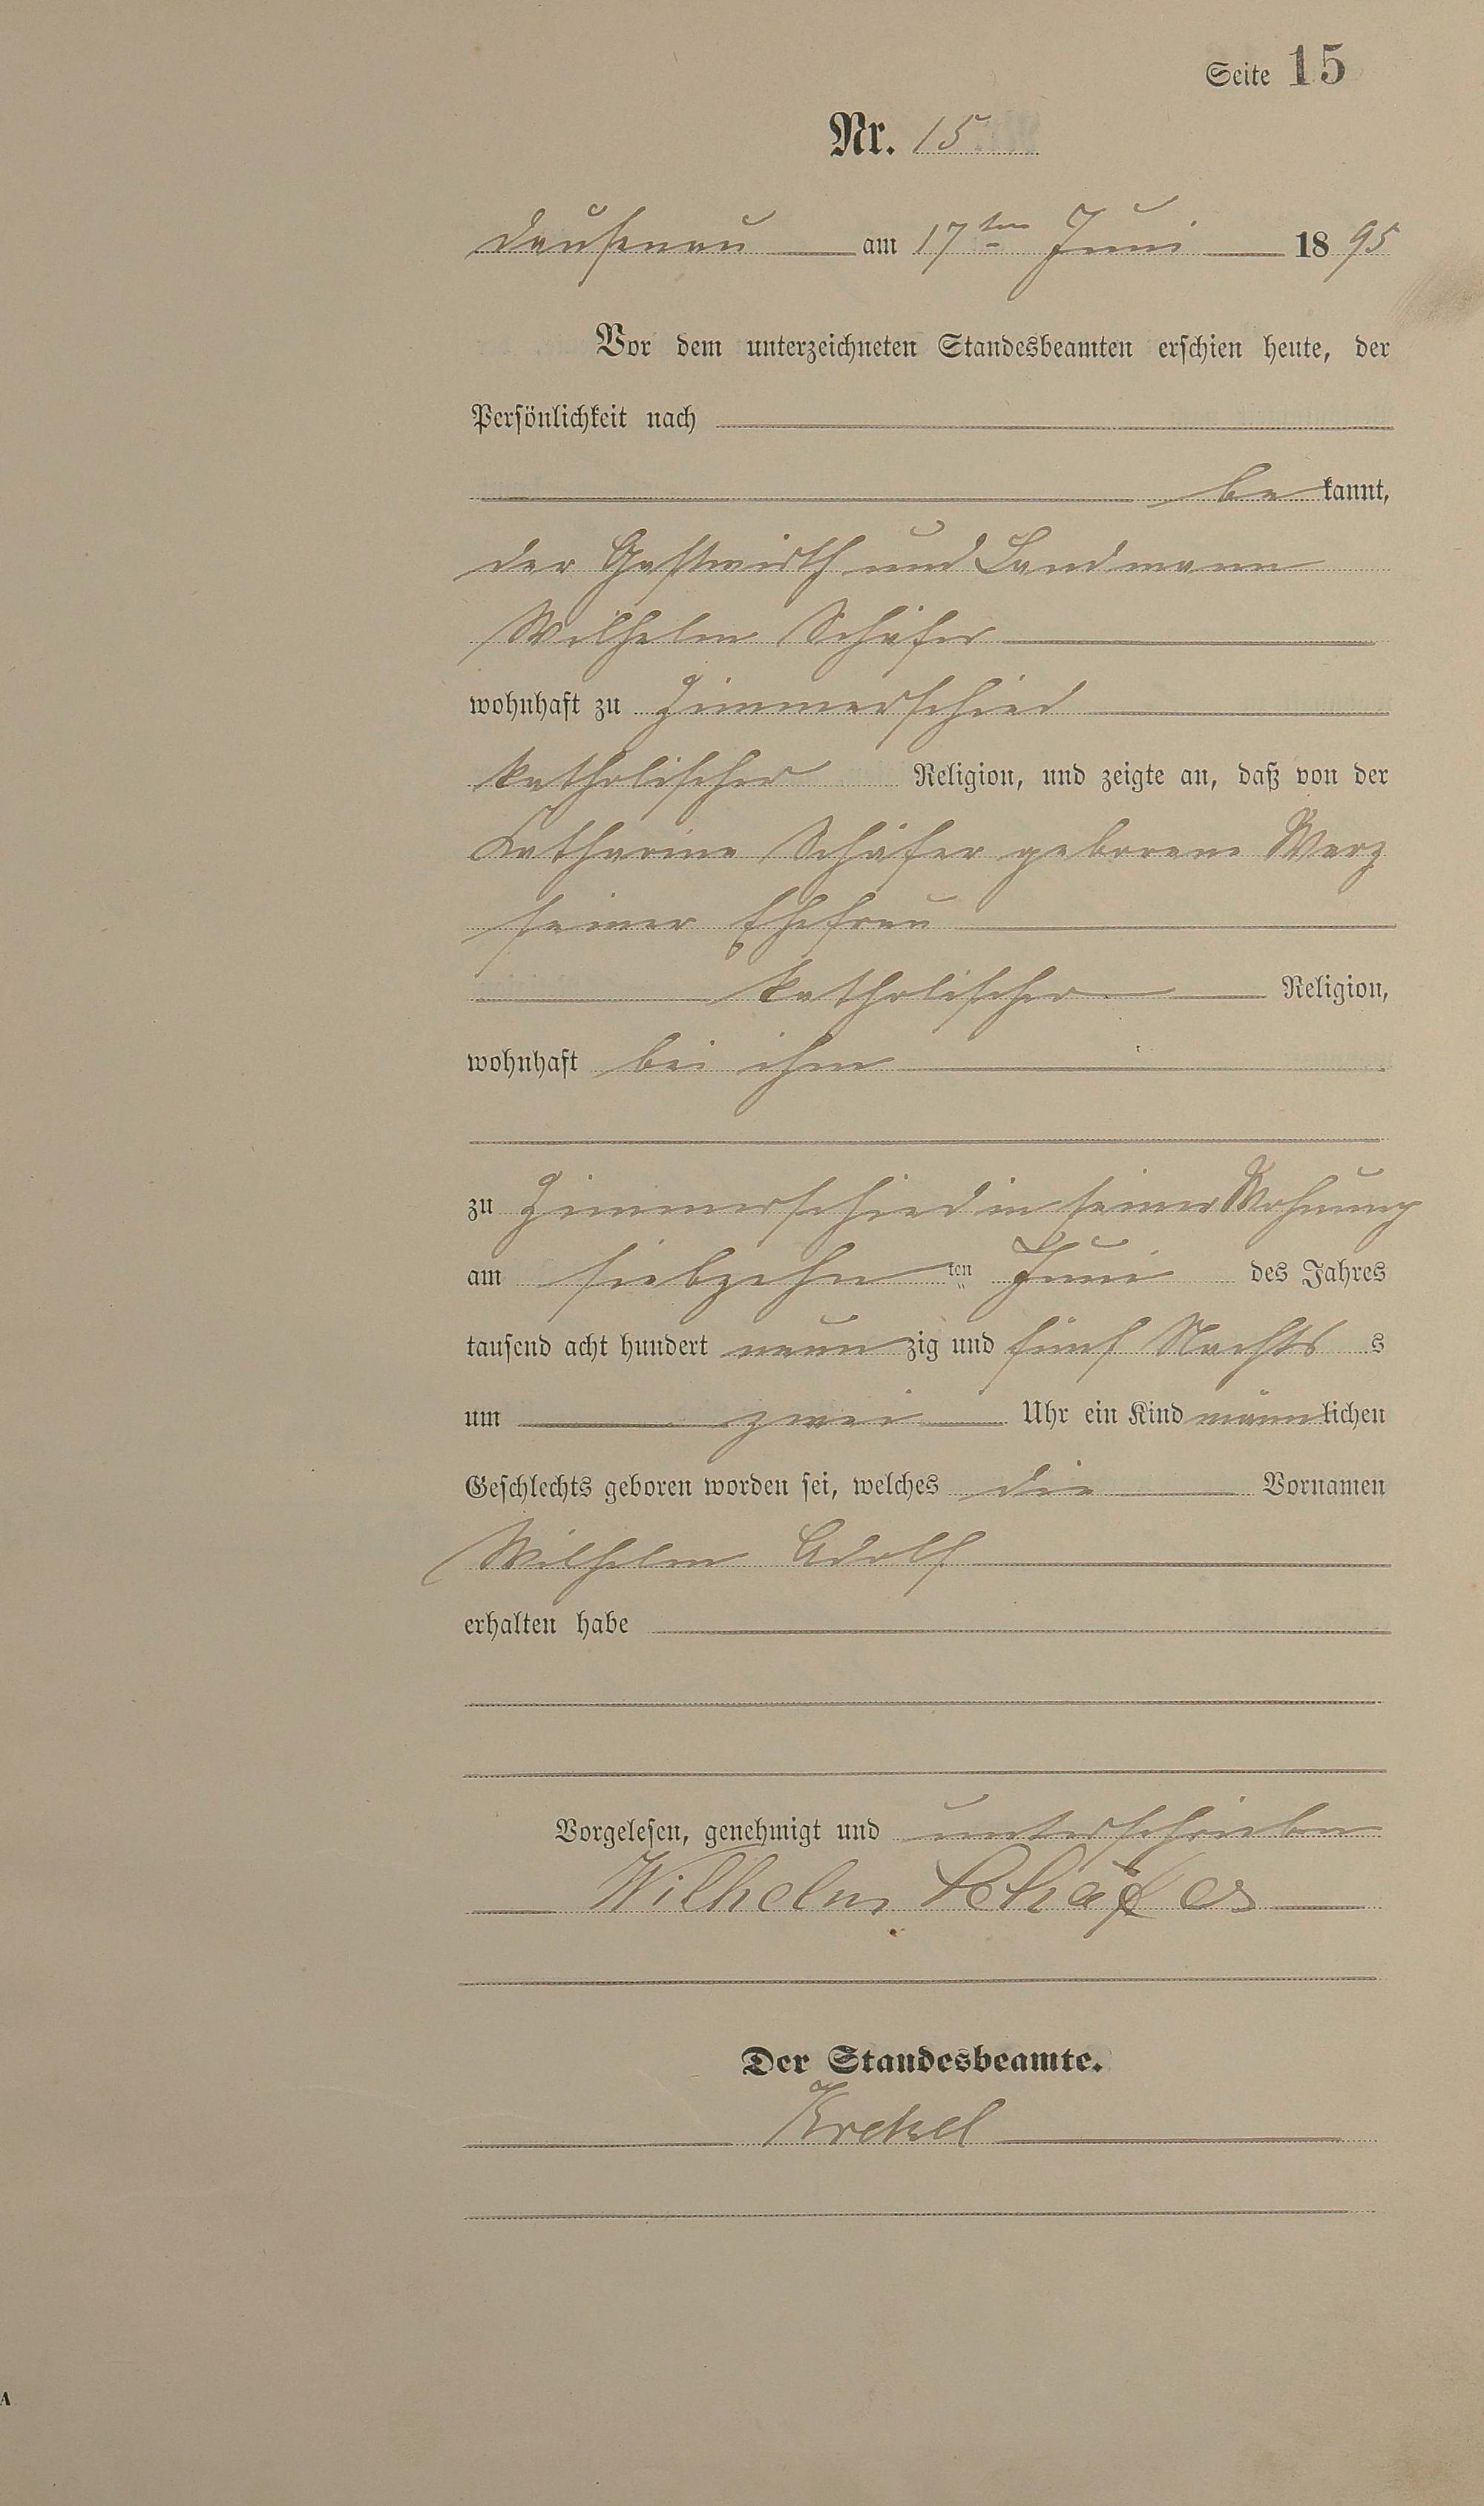 Seite 15
Nr. 15
Dausenau am 17ten Juni 1895
Vor dem unterzeichneten Standesbeamten erschien heute, der
Persönlichkeit nach
bekannt,
der Gastwirth und Landmann
Wilhelm Schäfer
wohnhaft zu Zimmerschied
katholischer Religion, und zeigte an, daß von der
Katharina Schäfer geborene Merz
seiner Ehefrau
katholischer Religion,
wohnhaft bei ihm
zu Zimmerschied in seiner Wohnung
am siebzehn ten Juni des Jahres
tausend acht hundert neunzig und fünf Nachts s
um zwei Uhr ein Kind männlichen
Geschlechts geboren worden sei, welches die Vornamen
Wilhelm Adolf
erhalten habe
Vorgelesen, genehmigt und unterschrieben
Wilhelm Schäfer
Der Standesbeamte.
Krekel
A